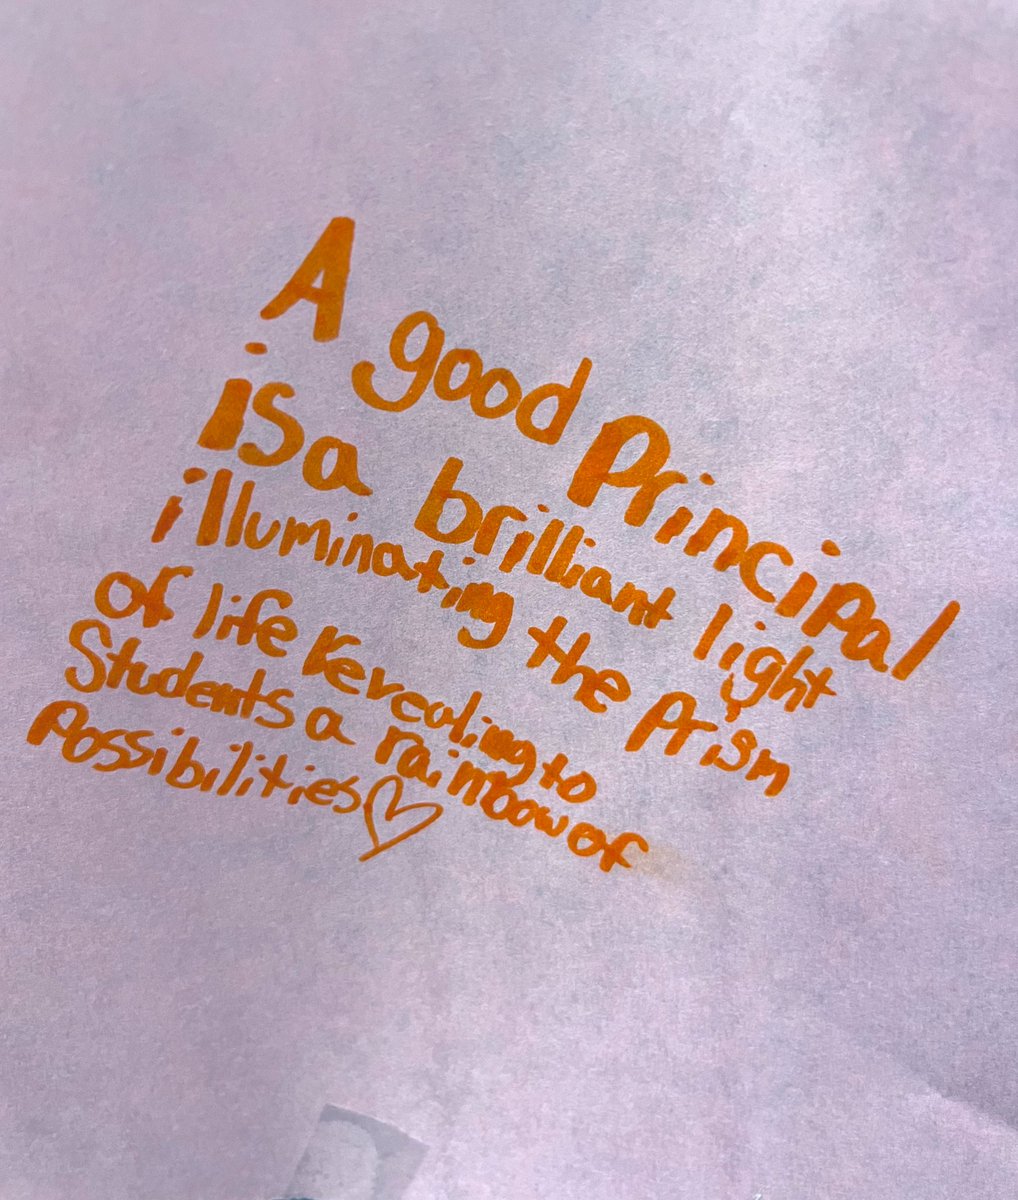 A good Principal
is a brilliant light
illuminating the Prism
of life revealing to
Students a rainbow of
Possibilities♡